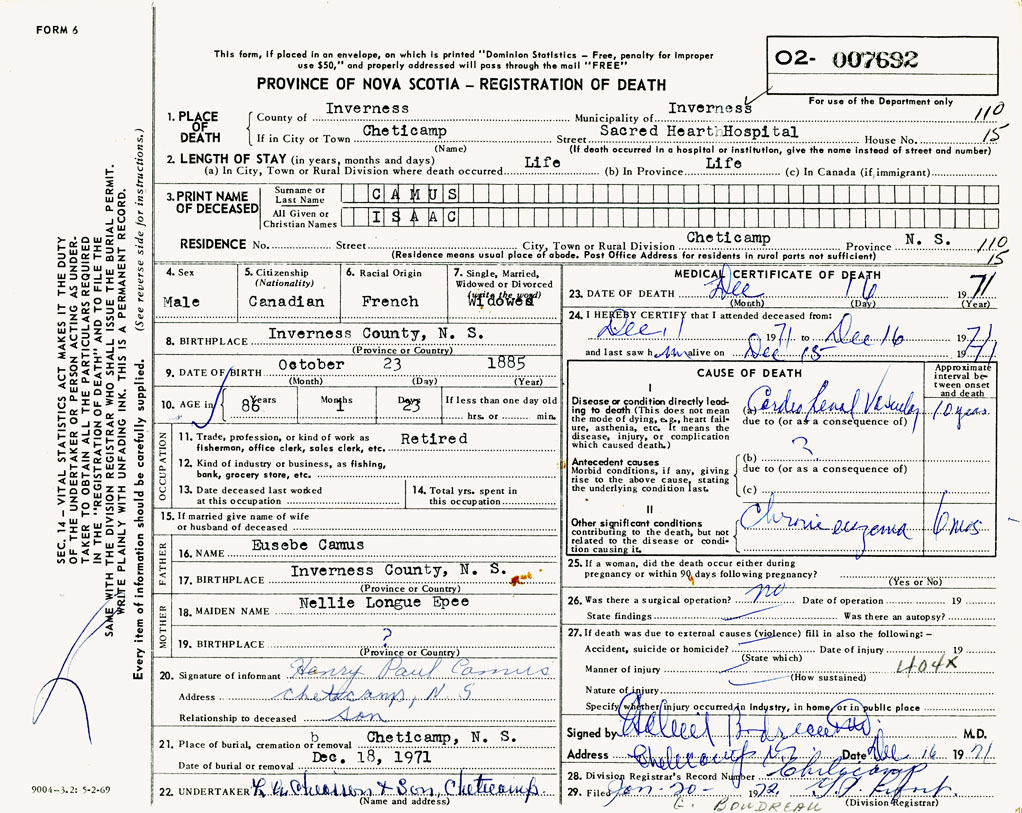 FORM 6
This form, if placed in an envelope, on which is printed "Dominion Statistics – Free, penalty for improper
use $50," and properly addressed will pass through the mail "FREE"
PROVINCE OF NOVA SCOTIA – REGISTRATION OF DEATH
02- 007692
For use of the Department only
1. PLACE OF DEATH
County of Inverness Municipality of Inverness 110
If in City or Town Cheticamp Street Sacred Heart Hospital House No. 15
(Name) (If death occurred in a hospital or institution, give the name instead of street and number)
2. LENGTH OF STAY (in years, months and days)
(a) In City, Town or Rural Division where death occurred Life (b) In Province Life (c) In Canada (if immigrant)
3. PRINT NAME OF DECEASED
Surname or Last Name CAMUS
All Given or Christian Names ISAAC
RESIDENCE No. Street City, Town or Rural Division Cheticamp Province N. S. 110
(Residence means usual place of abode. Post Office Address for residents in rural parts not sufficient) 15
4. Sex Male
5. Citizenship (Nationality) Canadian
6. Racial Origin French
7. Single, Married, Widowed or Divorced (write the word) Widowed
8. BIRTHPLACE Inverness County, N. S.
(Province or Country)
9. DATE OF BIRTH October 23 1885
(Month) (Day) (Year)
10. AGE in 86 Years Months 1 Days 23 If less than one day old
hrs. or min.
OCCUPATION
11. Trade, profession, or kind of work as Retired
fisherman, office clerk, sales clerk, etc.
12. Kind of industry or business, as fishing,
bank, grocery store, etc.
13. Date deceased last worked
at this occupation
14. Total yrs. spent in
this occupation
15. If married give name of wife
or husband of deceased
FATHER
16. NAME Eusebe Camus
17. BIRTHPLACE Inverness County, N. S.
(Province or Country)
MOTHER
18. MAIDEN NAME Nellie Longue Epee
19. BIRTHPLACE ?
(Province or Country)
20. Signature of informant Henry Paul Camus
Address Cheticamp, N. S
Relationship to deceased son
21. Place of burial, cremation or removal b Cheticamp, N. S.
Date of burial or removal Dec. 18, 1971
22. UNDERTAKER & Son, Cheticamp
(Name and address)
MEDICAL CERTIFICATE OF DEATH
23. DATE OF DEATH Dec 16 1971
(Month) (Day) (Year)
24. I HEREBY CERTIFY that I attended deceased from:
Dec 11 1971 to Dec 16 1971
and last saw him alive on Dec 15 1971
CAUSE OF DEATH
Approximate interval between onset and death
I
Disease or condition directly leading
to death (This does not mean
the mode of dying, e.g., heart failure,
asthenia, etc. It means the
disease, injury, or complication
which caused death.)
(a) Cardio Renal Vascular 10 years
due to (or as a consequence of)
?
Antecedent causes
Morbid conditions, if any, giving
rise to the above cause, stating
the underlying condition last.
(b)
due to (or as a consequence of)
(c)
II
Other significant conditions
contributing to the death, but not
related to the disease or condition
causing it.
Chronic eczema 6 mos
25. If a woman, did the death occur either during
pregnancy or within 90 days following pregnancy?
(Yes or No)
26. Was there a surgical operation? no Date of operation 19
State findings Was there an autopsy?
27. If death was due to external causes (violence) fill in also the following: –
Accident, suicide or homicide? Date of injury 19
(State which)
Manner of injury 404X
(How sustained)
Nature of injury
Specify whether injury occurred in industry, in home, or in public place
Signed by M.D.
Address Cheticamp Date Dec 16 1971
28. Division Registrar's Record Number Cheticamp
29. Filed Jan-20- 1972
(Division Registrar)
E. BOUDREAU
SEC. 14 – VITAL STATISTICS ACT MAKES IT THE DUTY
OF THE UNDERTAKER OR PERSON ACTING AS UNDERTAKER
TO OBTAIN ALL THE PARTICULARS REQUIRED
IN THE "REGISTRATION OF DEATH" AND TO FILE THE
SAME WITH THE DIVISION REGISTRAR WHO SHALL ISSUE THE BURIAL PERMIT.
WRITE PLAINLY WITH UNFADING INK. THIS IS A PERMANENT RECORD.
Every item of information should be carefully supplied. (See reverse side for instructions.)
9004-3.2: 5-2-69